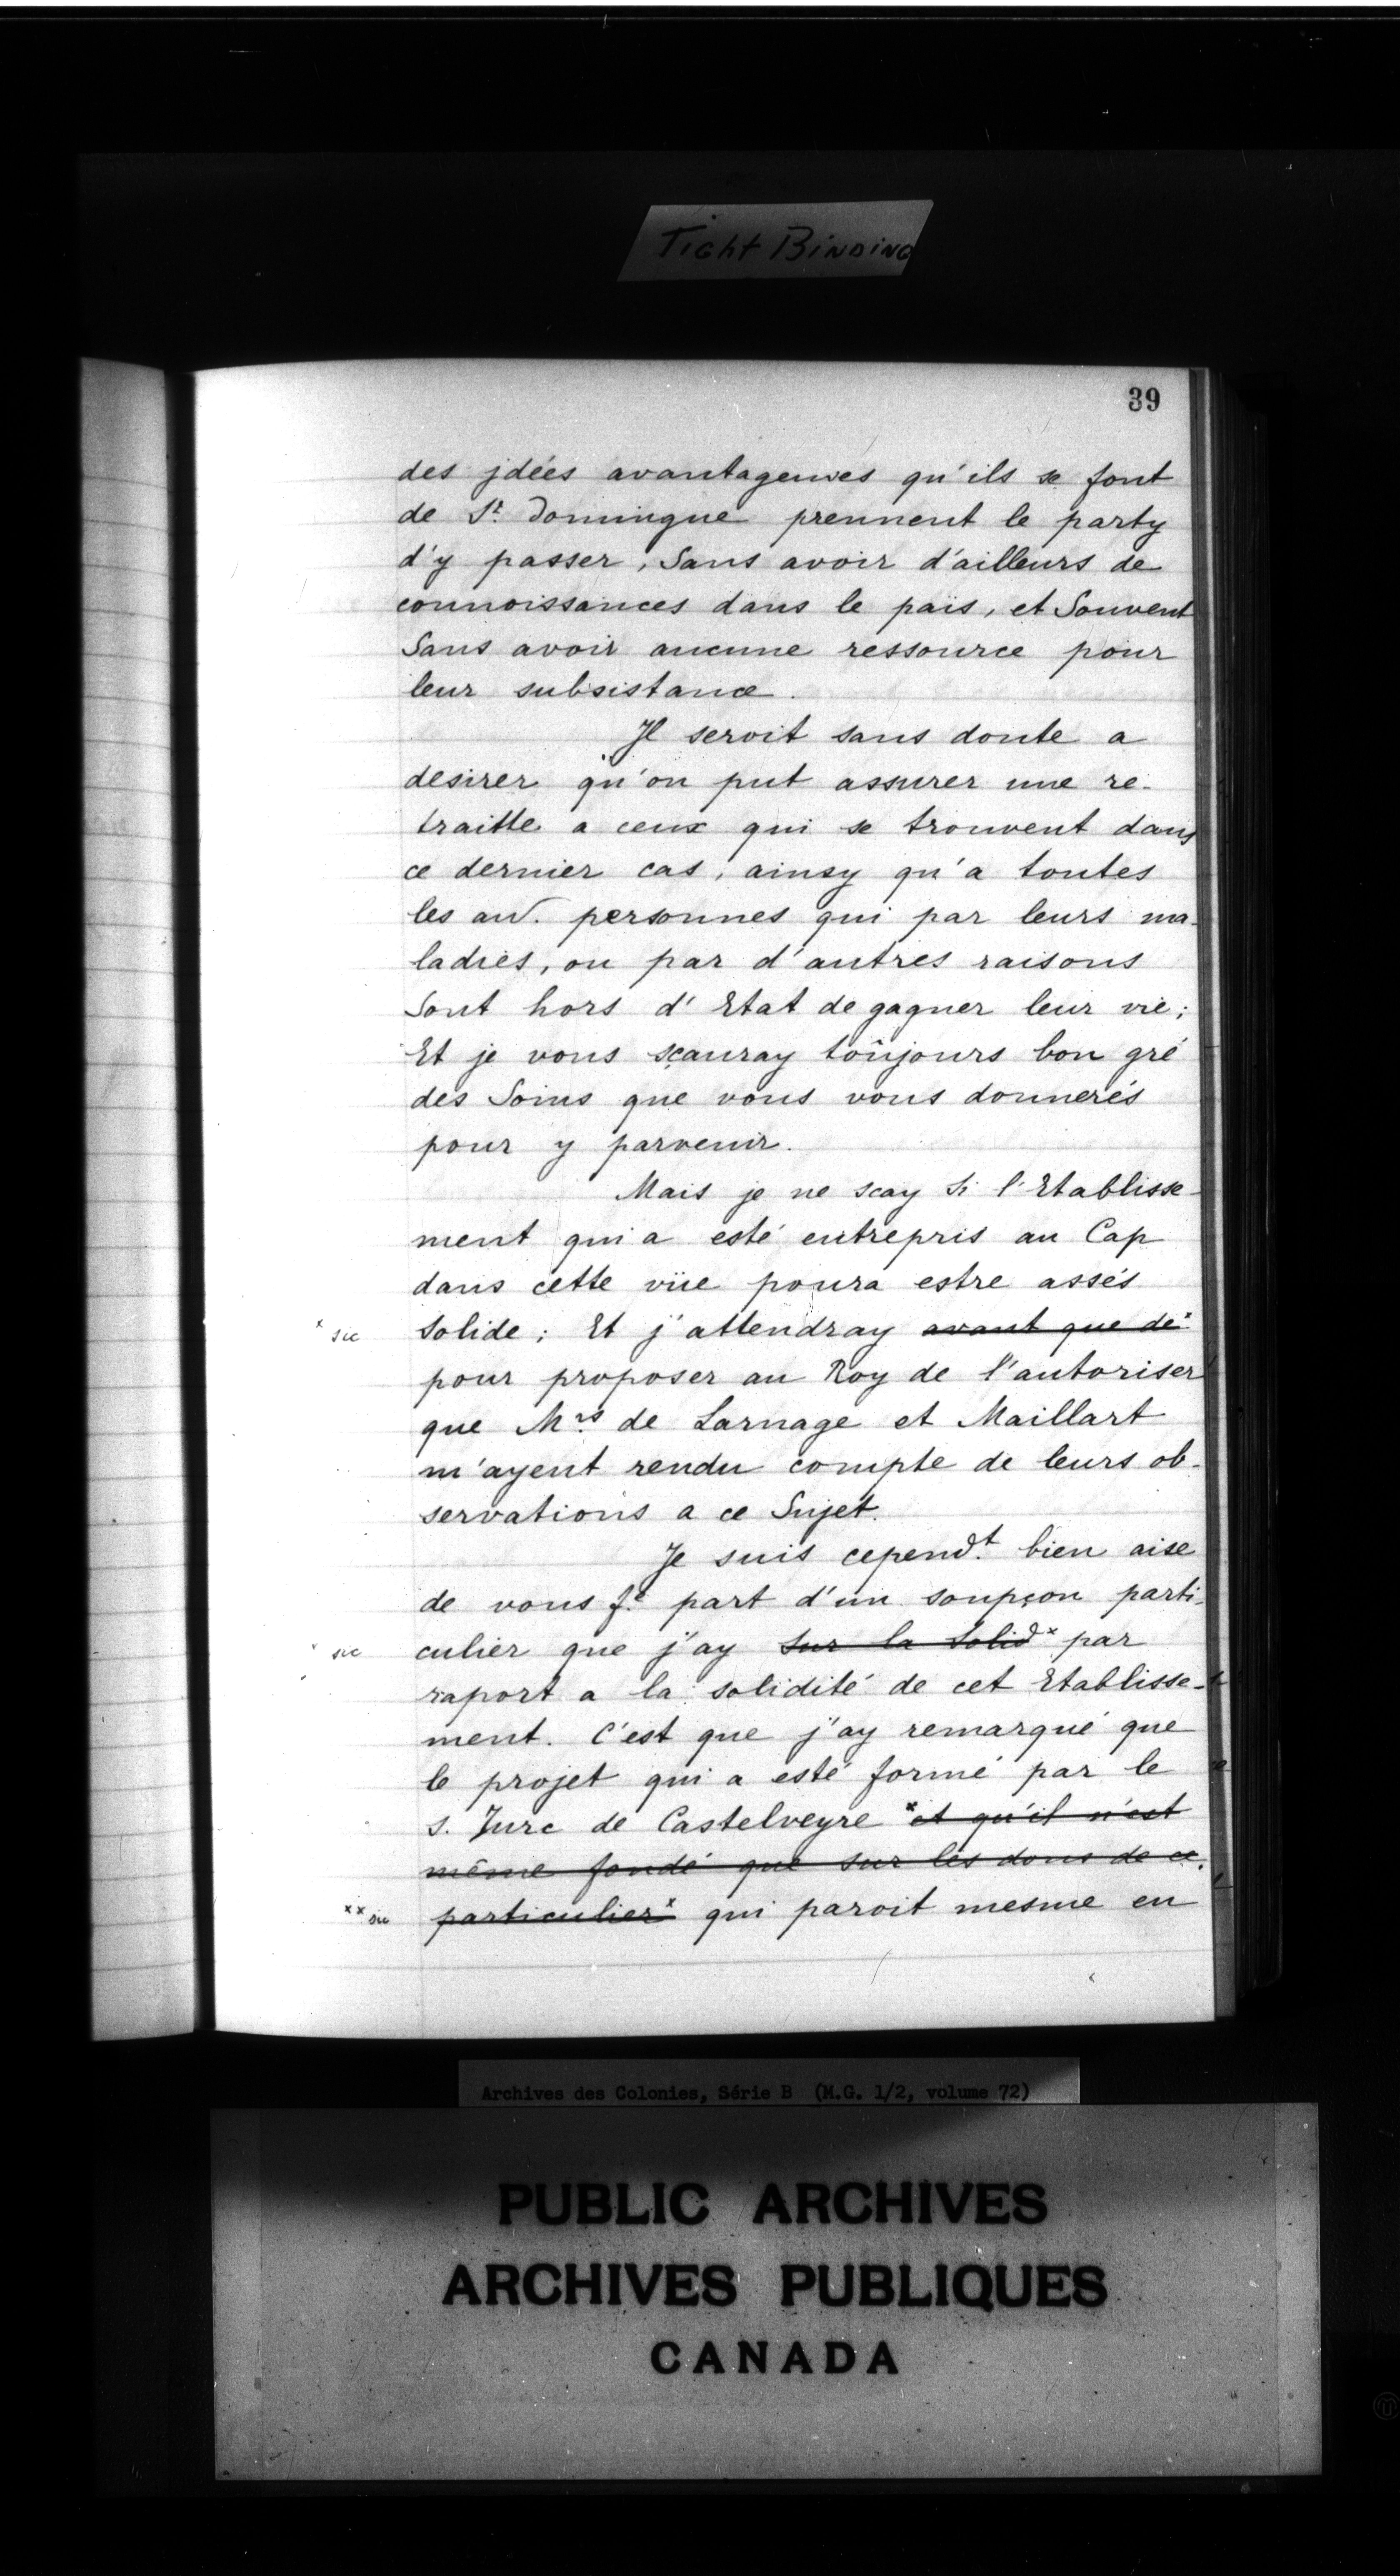 Tight Binding
39
des jdées avantageuses qu'ils se font
de St. Domingue prennent le party
d'y passer, Sans avoir d'ailleurs de
connoissances dans le païs, et Souvent
Sans avoir aucune ressource pour
leur subsistance.
Il seroit sans doute a
desirer qu'on put assurer une re-
traitte a ceux qui se trouvent dans
ce dernier cas, ainsy qu'a toutes
les au. personnes qui par leurs ma-
ladies, ou par d'autres raisons
Sont hors d'Etat de gagner leur vie;
Et je vous sçauray toûjours bon gré
des Soins que vous vous donnerés
pour y parvenir.
Mais je ne scay Si l'Etablisse-
ment qui a esté entrepris au Cap
dans cette vüe poura estre assés
x sic Solide; Et j'attendray avant que de x
pour proposer au Roy de l'autoriser
que Mrs. de Larnage et Maillart
m'ayent rendu compte de leurs ob-
servations a ce Sujet.
Je suis cepend.t bien aise
de vous f.e part d'un soupçon parti-
x sic culier que j'ay sur la Solid x par
raport a la solidité de cet Etablisse-
ment. C'est que j'ay remarqué que
le projet qui a esté formé par le
s. Jure de Castelveyre x et qu'il n'est
même fondé que sur les dons de ce
xx sic particulier x qui paroit mesme en
Archives des Colonies, Série B (M.G. 1/2, volume 72)
PUBLIC ARCHIVES
ARCHIVES PUBLIQUES
CANADA